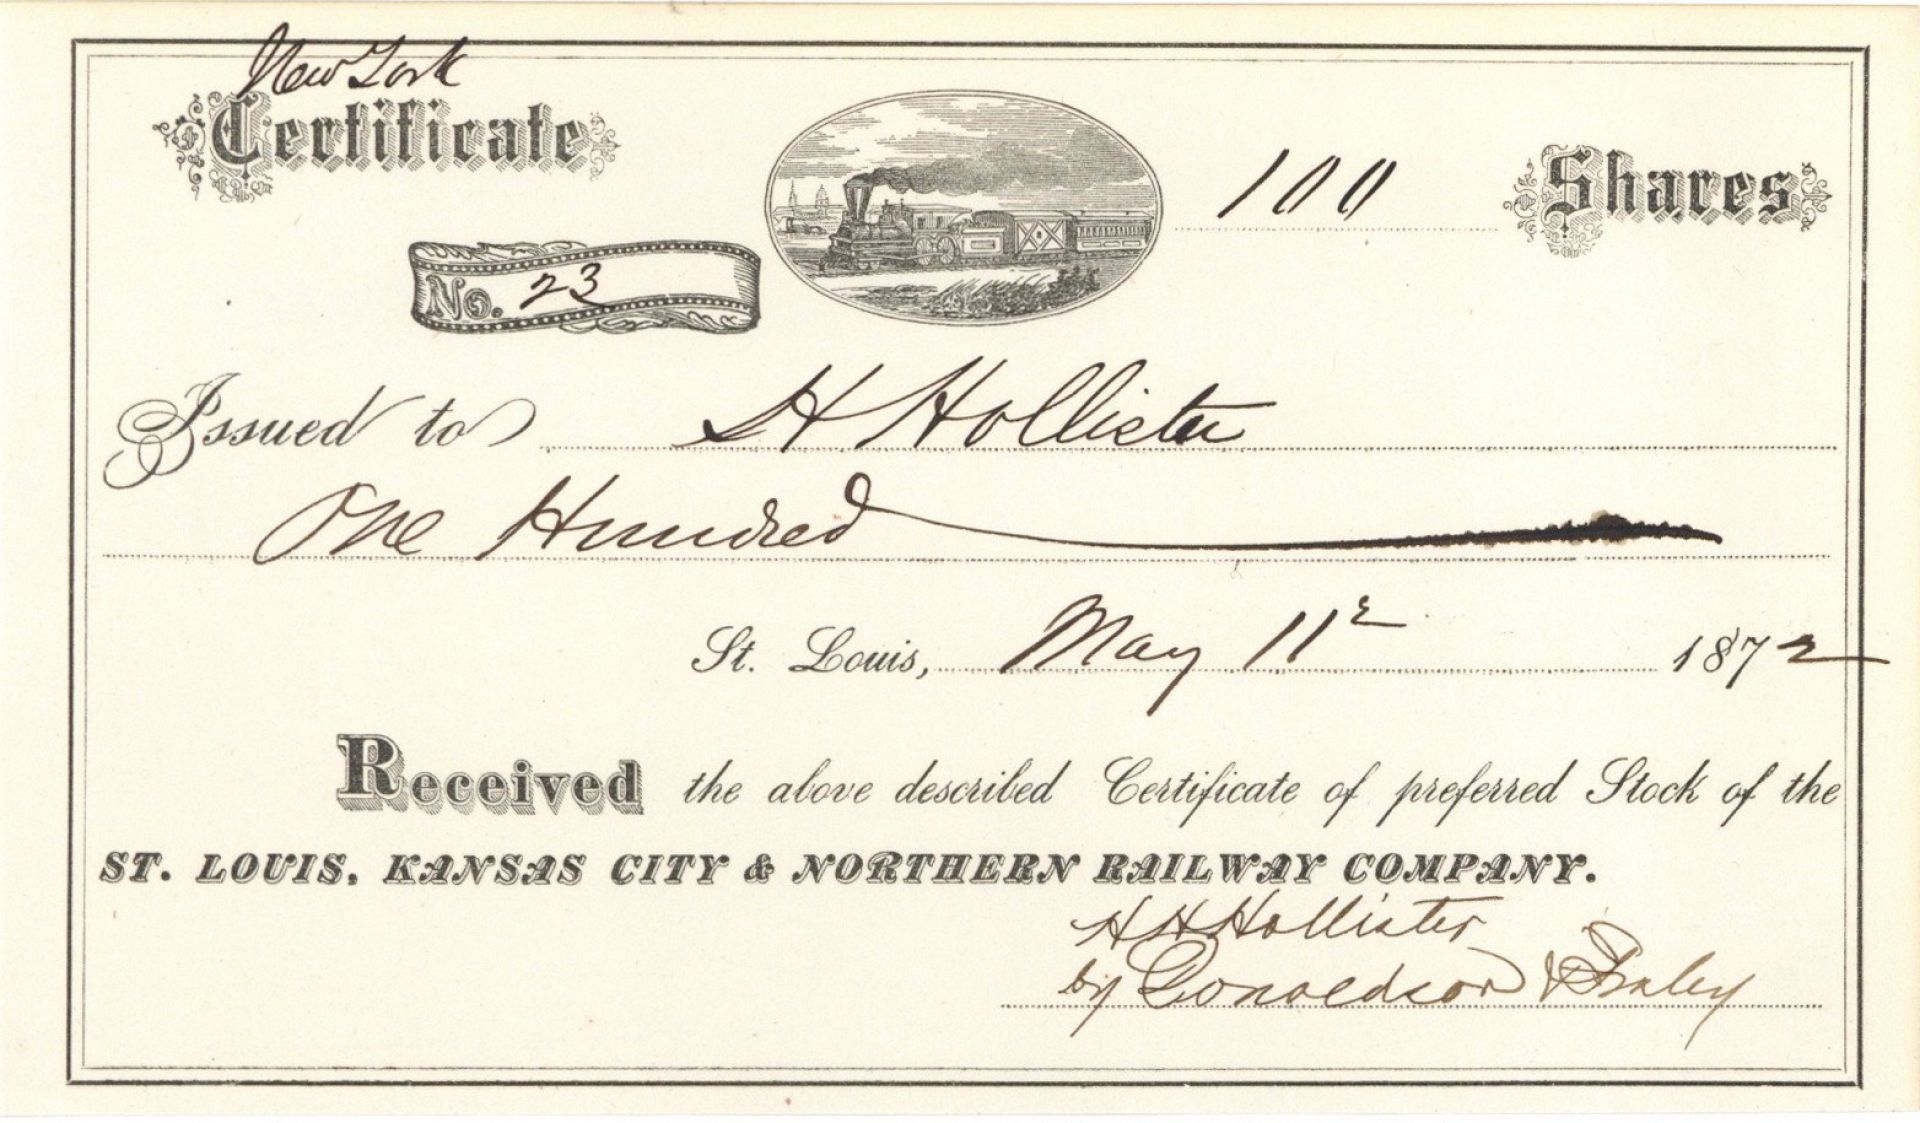 New York
Certificate
100 Shares
No. 23
Issued to H Hollister
One Hundred
St. Louis, May 11th 1872
Received the above described Certificate of preferred Stock of the
ST. LOUIS, KANSAS CITY & NORTHERN RAILWAY COMPANY.
H H Hollister
by Donaldson & Fraley